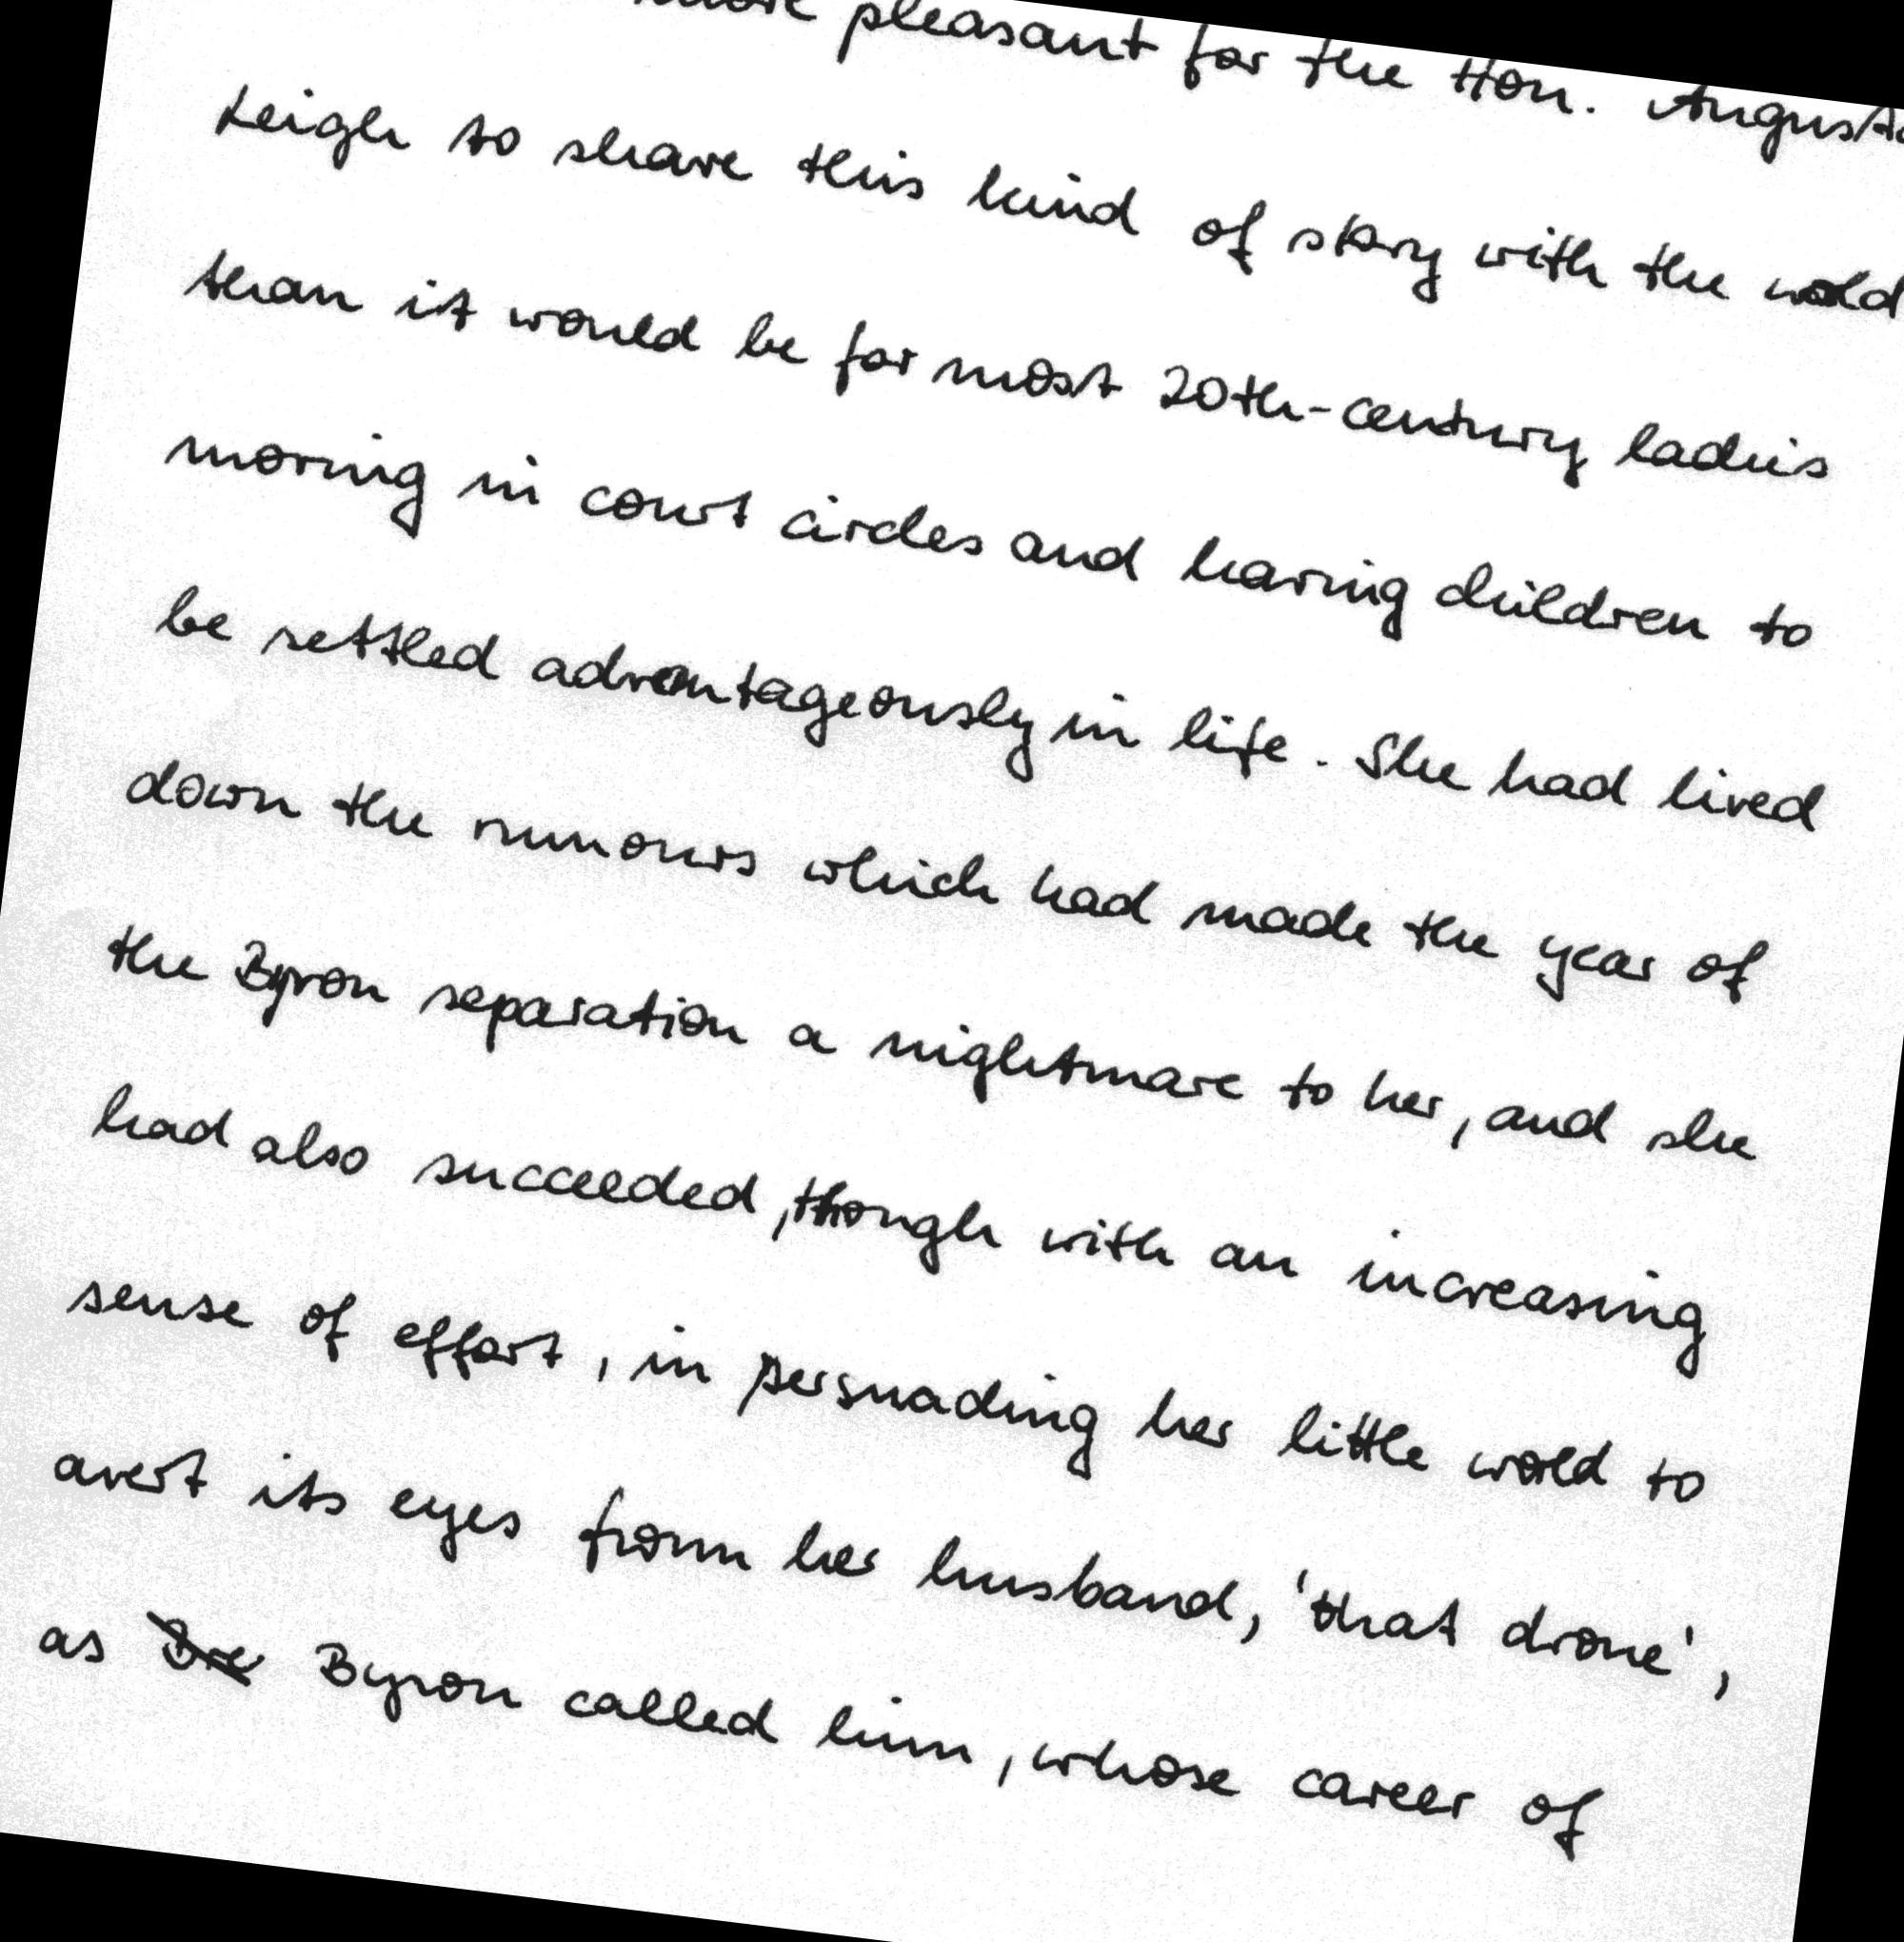 more pleasant for the Hon. Augusta
Leigh to share this kind of story with the wold
than it would be for most 20th-century ladies
moving in court circles and having children to
be settled advantageously in life. She had lived
down the rumours which had made the year of
the Byron separation a nightmare to her, and she
had also succeeded, though with an increasing
sense of effort, in persuading her little wold to
avert its eyes from her husband, 'that drone',
as Byron called him, whose career of